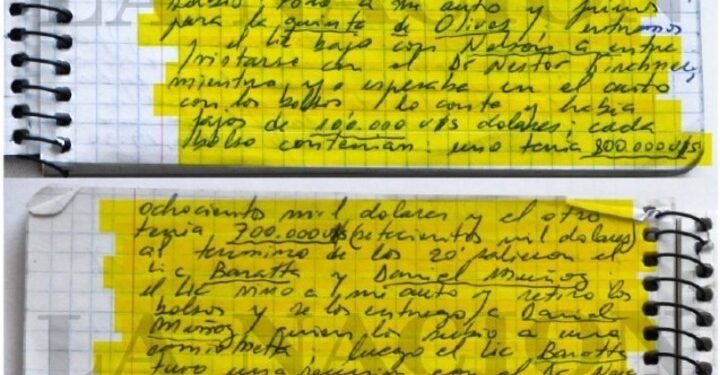 a mi auto y fuimos
para la quinta de Olivos, entramos
y el lic bajo con Nelson a entre
vistarse con el Dr Nestor Kirchner,
mientras yo esperaba en el auto
con los bolsos, los conte y habia
fajos de 100.000 u$s dolares; cada
bolso contenian: uno tenia 800.000 u$s
ochociento mil dolares y el otro
tenia 700.000 u$s (setecientos mil dolares)
al termino de los 20' salieron el
lic Baratta y Daniel Muñoz
el lic vino a mi auto y retiro los
bolsos y se los entrego a Daniel
Muñoz, quien los subio a una
camioneta, luego el lic Baratta
tuvo una reunion con el Dr
LA NACION